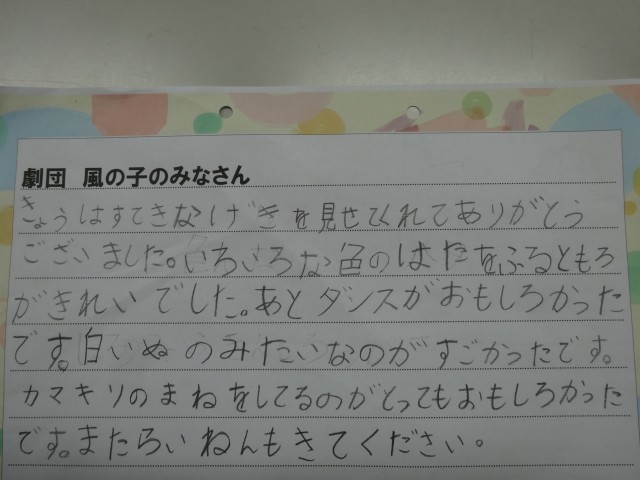 劇団 風の子のみなさん
きょうはすてきなげきを見せてくれてありがとう
ございました。いろいろな色のはたをふるともろ
がきれいでした。あとダンスがおもしろかった
です。白いぬのみたいなのがすごかったです。
カマキリのまねをしてるのがとってもおもしろかった
です。またらいねんもきてください。